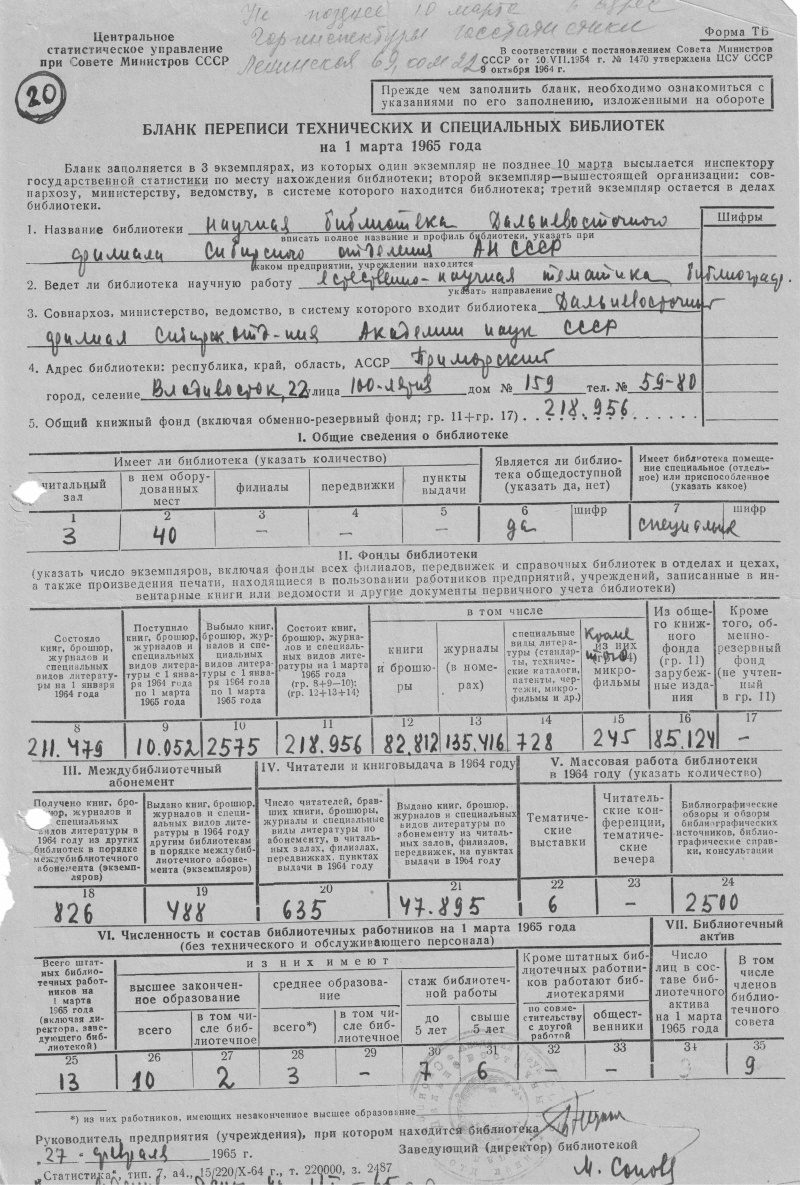 Не позднее 10 марта в адрес
Горинспектуры Госстатистики
Ленинская 69, ком 22
Центральное
статистическое управление
при Совете Министров СССР
Форма ТБ
В соответствии с постановлением Совета Министров
СССР от 10.VII.1954 г. № 1470 утверждена ЦСУ СССР
9 октября 1964 г.
20
Прежде чем заполнить бланк, необходимо ознакомиться с
указаниями по его заполнению, изложенными на обороте
БЛАНК ПЕРЕПИСИ ТЕХНИЧЕСКИХ И СПЕЦИАЛЬНЫХ БИБЛИОТЕК
на 1 марта 1965 года
Бланк заполняется в 3 экземплярах, из которых один экземпляр не позднее 10 марта высылается инспектору
государственной статистики по месту нахождения библиотеки; второй экземпляр—вышестоящей организации: сов-
нархозу, министерству, ведомству, в системе которого находится библиотека; третий экземпляр остается в делах
библиотеки.
Шифры
1. Название библиотеки Научная библиотека Дальневосточного
вписать полное название и профиль библиотеки, указать при
филиала Сибирского отделения АН СССР
каком предприятии, учреждении находится
2. Ведет ли библиотека научную работу естественно-научная тематика библиограф.
указать направление
3. Совнархоз, министерство, ведомство, в систему которого входит библиотека Дальневосточный
филиал Сибирск. отд-ния Академии наук СССР
4. Адрес библиотеки: республика, край, область, АССР Приморский
город, селение Владивосток, 22 улица 100-летия дом № 159 тел. № 59-80
5. Общий книжный фонд (включая обменно-резервный фонд; гр. 11+гр. 17) . 218.956 . . . . . .
I. Общие сведения о библиотеке
Имеет ли библиотека (указать количество)
Является ли библио-
тека общедоступной
(указать да, нет)
Имеет библиотека помеще-
ние специальное (отдель-
ное) или приспособленное
(указать какое)
читальный
зал
в нем обору-
дованных
мест
филиалы
передвижки
пункты
выдачи
1 2 3 4 5 6 шифр 7 шифр
3 40 — — — да специальное
II. Фонды библиотеки
(указать число экземпляров, включая фонды всех филиалов, передвижек и справочных библиотек в отделах и цехах,
а также произведения печати, находящиеся в пользовании работников предприятий, учреждений, записанные в ин-
вентарные книги или ведомости и другие документы первичного учета библиотеки)
Состояло
книг, брошюр,
журналов и
специальных
видов литерату-
ры на 1 января
1964 года
Поступило
книг, брошюр,
журналов и
специальных
видов литера-
туры с 1 янва-
ря 1964 года
по 1 марта
1965 года
Выбыло книг,
брошюр, жур-
налов и спе-
циальных
видов литера-
туры с 1 янва-
ря 1964 года
по 1 марта
1965 года
Состоит книг,
брошюр, журна-
лов и специаль-
ных видов лите-
ратуры на 1 марта
1965 года
(гр. 8+9—10);
(гр. 12+13+14)
в том числе
книги
и брошю-
ры
журналы
(в номе-
рах)
специальные
виды литера-
туры (стандар-
ты, техниче-
ские каталоги,
патенты, чер-
тежи, микро-
фильмы и др.)
Кроме
из них
микро-
фильмы
Из обще-
го книж-
ного
фонда
(гр. 11)
зарубеж-
ные изда-
ния
Кроме
того, об-
менно-
резервный
фонд
(не учтен-
ный
в гр. 11)
8 9 10 11 12 13 14 15 16 17
211.479 10.052 2575 218.956 82.812 135.416 728 245 85.124 —
III. Междубиблиотечный
абонемент
IV. Читатели и книговыдача в 1964 году
V. Массовая работа библиотеки
в 1964 году (указать количество)
Получено книг, бро-
шюр, журналов и
специальных
видов литературы в
1964 году из других
библиотек в порядке
междубиблиотечного
абонемента (экземп-
ляров)
Выдано книг, брошюр,
журналов и специаль-
ных видов лите-
ратуры в 1964 году
другим библиотекам
в порядке междубиб-
лиотечного абоне-
мента (экземпляров)
Число читателей, брав-
ших книги, брошюры,
журналы и специальные
виды литературы по
абонементу, в читаль-
ных залах, филиалах,
передвижках, пунктах
выдачи в 1964 году
Выдано книг, брошюр,
журналов и специальных
видов литературы по
абонементу из читаль-
ных залов, филиалов,
передвижек, на пунктах
выдачи в 1964 году
Тематиче-
ские
выставки
Читатель-
ские кон-
ференции,
тематиче-
ские
вечера
Библиографические
обзоры и обзоры
библиографических
источников, библио-
графические справ-
ки, консультации
18 19 20 21 22 23 24
826 488 635 47.895 6 — 2500
VI. Численность и состав библиотечных работников на 1 марта 1965 года
(без технического и обслуживающего персонала)
VII. Библиотечный
актив
Всего штат-
ных библио-
течных работ-
ников на
1 марта
1965 года
(включая ди-
ректора, заве-
дующего биб-
лиотекой)
из них имеют
высшее закончен-
ное образование
среднее образова-
ние
стаж библиотеч-
ной работы
всего
в том чи-
сле биб-
лиотечное
всего*)
в том чи-
сле биб-
лиотечное
до
5 лет
свыше
5 лет
Кроме штатных биб-
лиотечных работни-
ков работают биб-
лиотекарями
по совме-
стительству
с другой
работой
общест-
венники
Число
лиц в сос-
таве биб-
лиотечного
актива
на 1 марта
1965 года
В том
числе
членов
библио-
течного
совета
25 26 27 28 29 30 31 32 33 34 35
13 10 2 3 — 7 6 — — 9
*) из них работников, имеющих незаконченное высшее образование
Руководитель предприятия (учреждения), при котором находится библиотека
27 февраля 1965 г.
Заведующий (директор) библиотекой
„Статистика", тип. 7, а4., 15/220/X-64 г., т. 220000, з. 2487